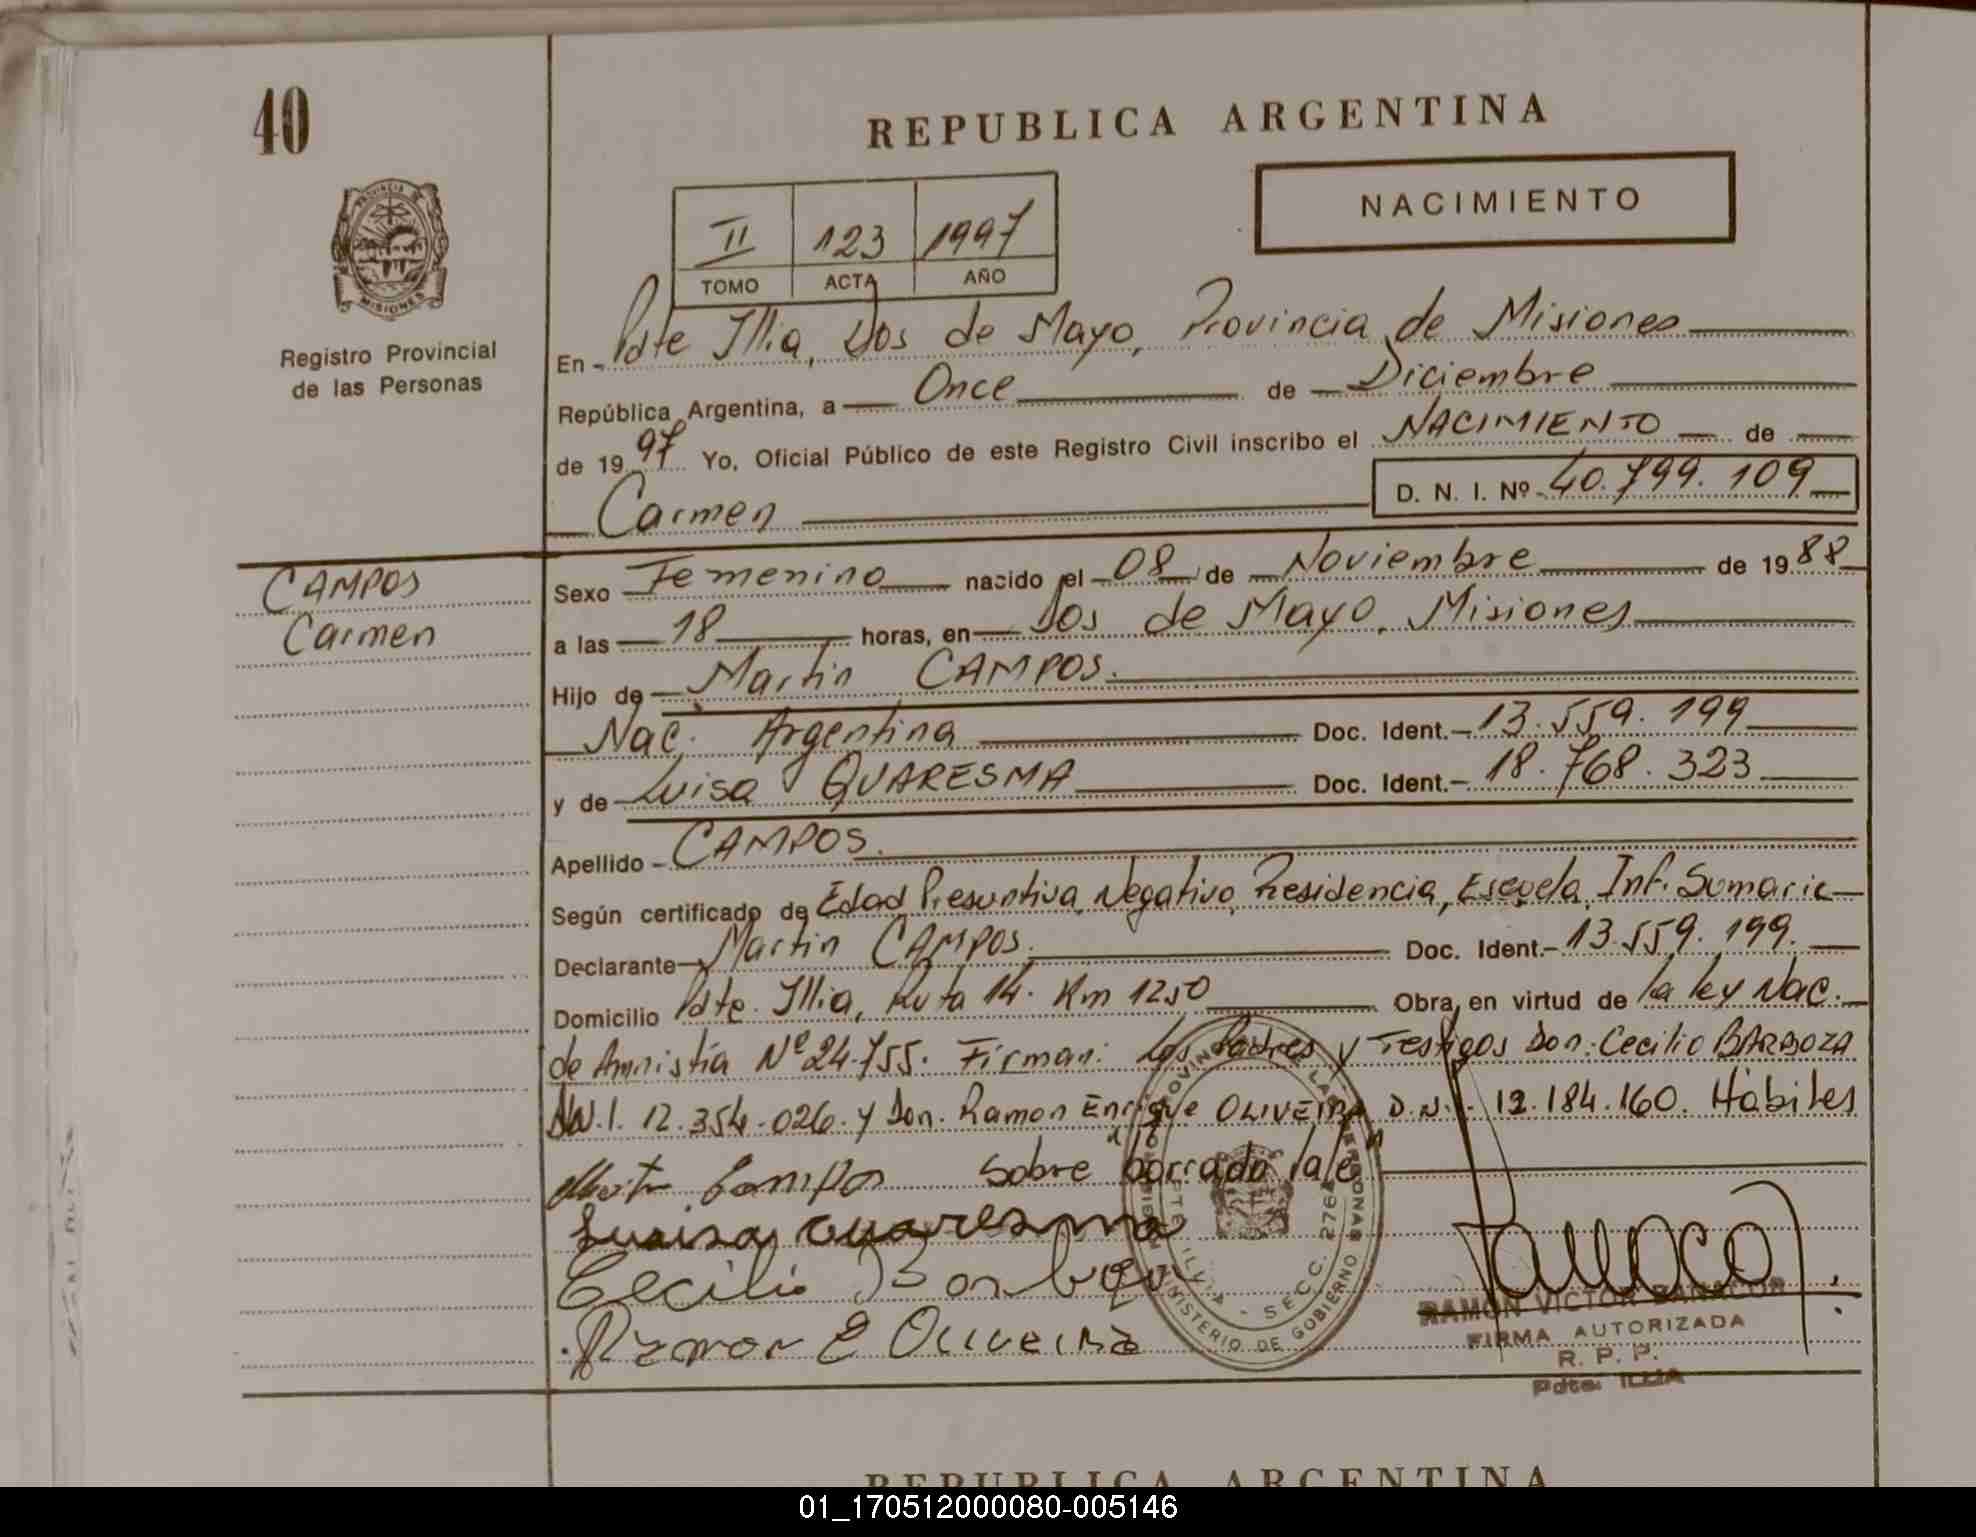 40
REPUBLICA ARGENTINA
NACIMIENTO
II 123 1997
TOMO ACTA AÑO
PROVINCIA DE
MISIONES
Registro Provincial
de las Personas
En Pdte Illia, Dos de Mayo, Provincia de Misiones
República Argentina, a Once de Diciembre
de 19 97 Yo, Oficial Público de este Registro Civil inscribo el NACIMIENTO de
Carmen D. N. I. Nº 40.799.109
CAMPOS
Carmen
Sexo Femenino nacido el 08 de Noviembre de 19 88
a las 18 horas, en Dos de Mayo, Misiones
Hijo de Martin CAMPOS.
Nac. Argentina Doc. Ident. 13.559.199
y de Luisa QUARESMA Doc. Ident. 18.768.323
Apellido CAMPOS.
Según certificado de Edad Presuntiva, Negativo, Residencia, Escuela, Inf. Sumaria
Declarante Martin CAMPOS. Doc. Ident. 13.559.199.
Domicilio Pdte. Illia, Ruta 14. Km 1250 Obra, en virtud de la ley Nac.
de Amnistía Nº 24.755. Firman: Los Padres y Testigos Don: Cecilio BARBOZA
D.N.I. 12.354.026. y Don. Ramon Enrique OLIVEIRA D.N.I. 12.184.160. Hábiles
Campos Sobre "borrado Vale"
Luisa Cuaresma
Cecilio
Ramon E Oliveira
SECC. 2764
MINISTERIO DE GOBIERNO
RAMON VICTOR
FIRMA AUTORIZADA
R. P. P.
Pdte. ILLIA
REPUBLICA ARGENTINA
01_170512000080-005146